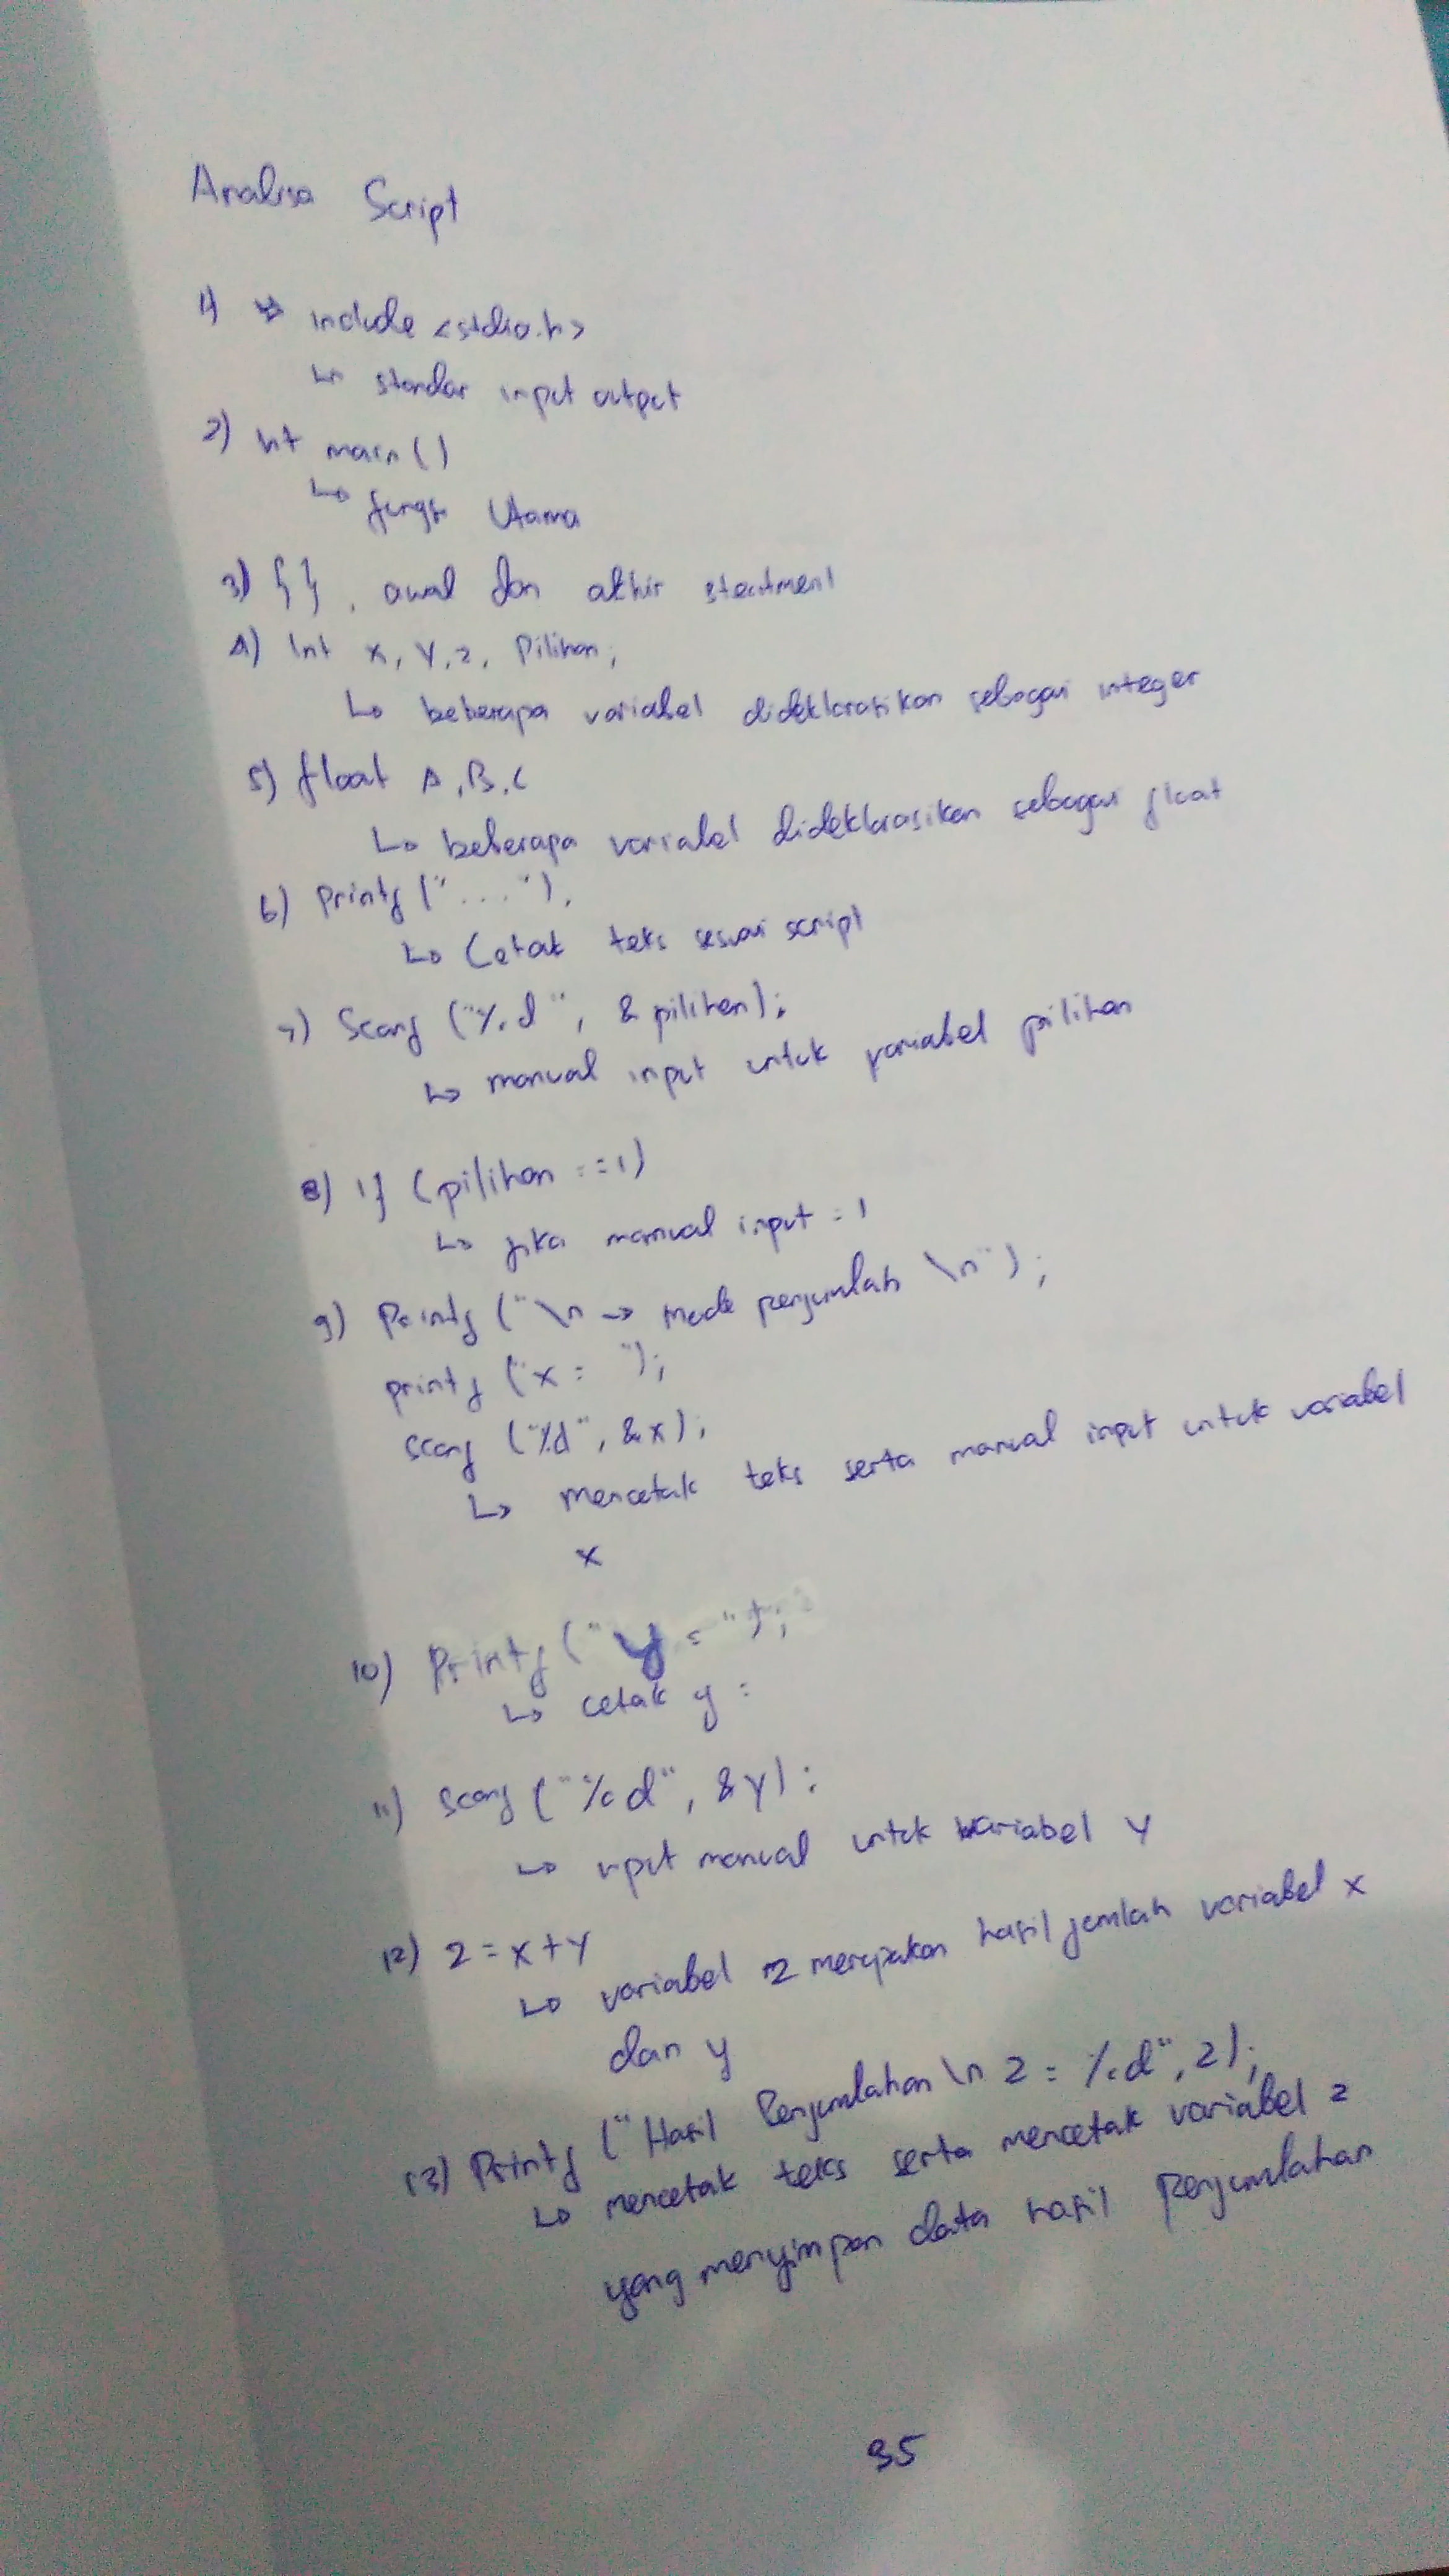 Analisa Script
1) # include <stdio.h>
↳ standar input output
2) Int main()
↳ fungsi Utama
3) { } , awal dan akhir
4) Int x, y, z, Pilihan;
↳ beberapa variabel dideklarasikan sebagai integer
5) float A, B, C
↳ beberapa variabel dideklarasikan sebagai float
6) Printf ("...");
↳ Cetak teks sesuai script
7) Scanf ("%d", & pilihan);
↳ manual input untuk variabel pilihan
8) If (pilihan == 1)
↳ jika manual input = 1
9) Printf ("\n → mode penjumlah \n");
printf ("x = ");
scanf ("%d", &x);
↳ mencetak teks serta manual input untuk variabel
x
10) Printf ("y = ");
↳ cetak y =
11) Scanf ("%d", &y);
↳ input manual untuk variabel y
12) z = x + y
↳ variabel z merupakan hasil jumlah variabel x
dan y
13) Printf ("Hasil Penjumlahan \n z = %d", z);
↳ mencetak teks serta mencetak variabel z
yang menyimpan data hasil penjumlahan
35